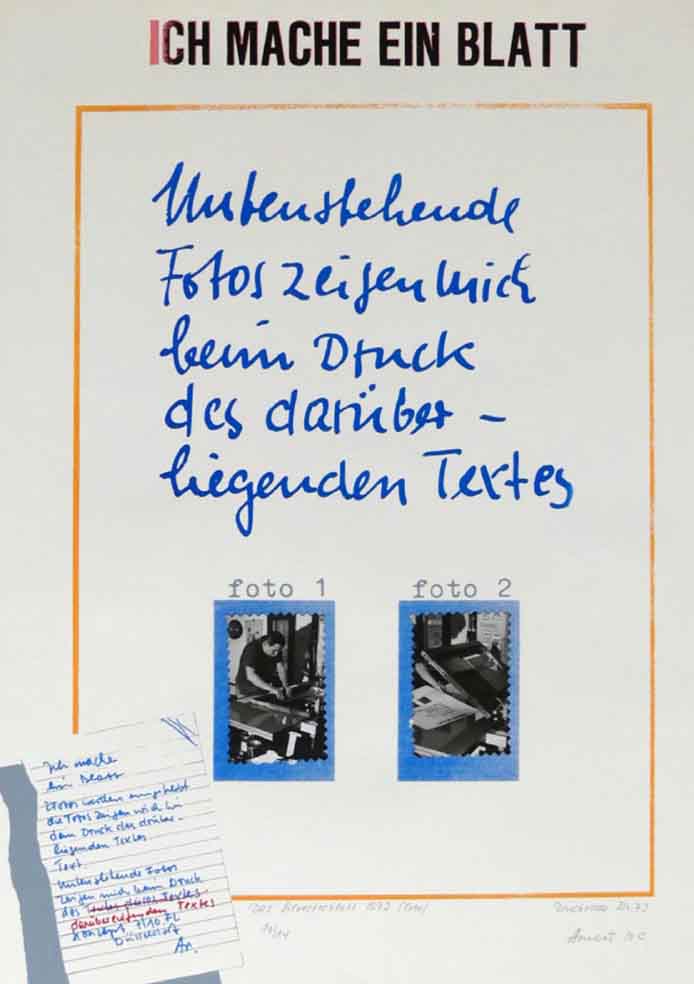 ICH MACHE EIN BLATT
Untenstehende
Fotos zeigen mich
beim Druck
des darüber –
liegenden Textes
foto 1
foto 2
Ich mache
ein Blatt
2 Fotos werden eingeklebt
die Fotos zeigen mich bei
dem Druck des darüber-
liegenden Textes
Text
Untenstehende Fotos
zeigen mich beim Druck
des Textes
darüberliegenden Textes
Konzept 7/10.72
Düsseldorf
An.
14